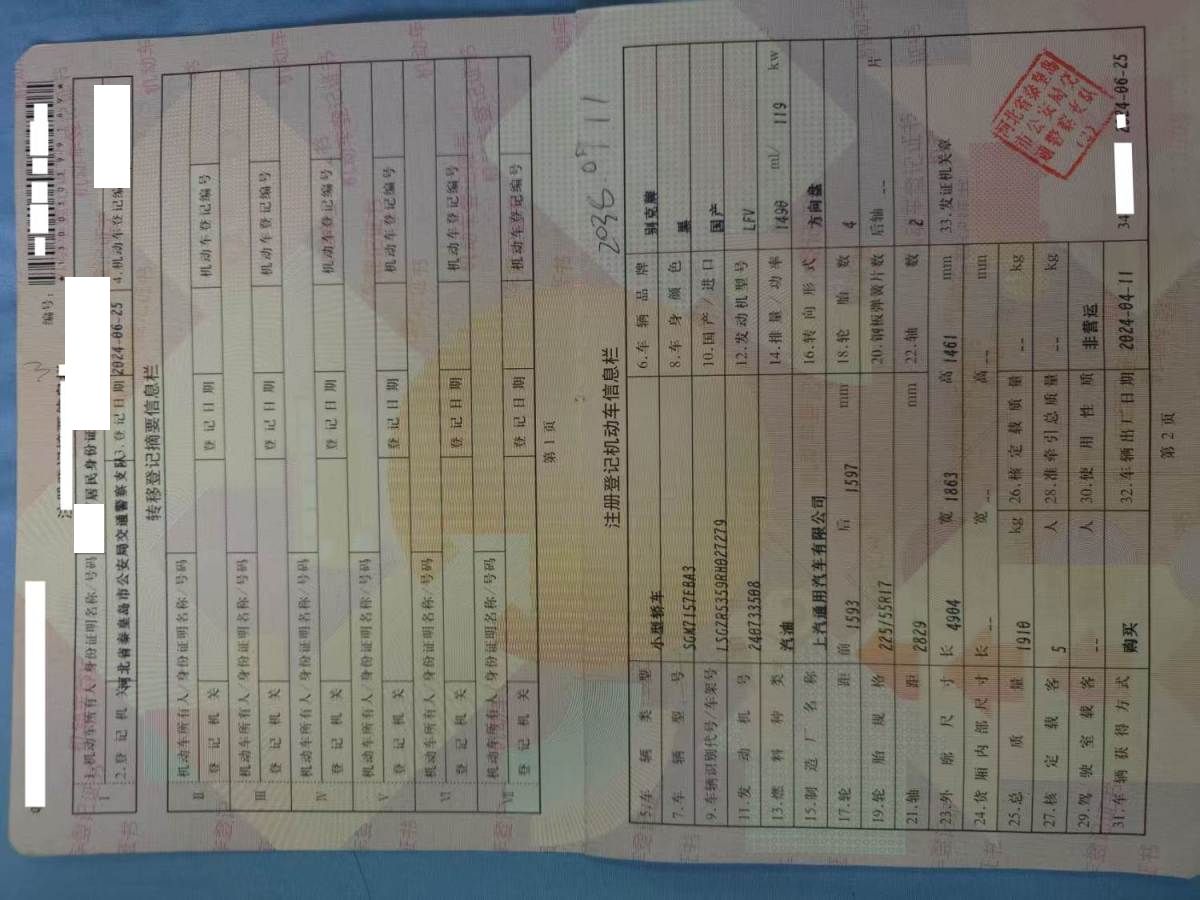 编号:
1.机动车所有人/身份证明名称/号码 居民身份证
2.登记机关 河北省秦皇岛市公安局交通警察支队 3.登记日期 2024-06-25 4.机动车登记编
转移登记摘要信息栏
II 机动车所有人/身份证明名称/号码
登记机关 登记日期 机动车登记编号
III 机动车所有人/身份证明名称/号码
登记机关 登记日期 机动车登记编号
IV 机动车所有人/身份证明名称/号码
登记机关 登记日期 机动车登记编号
V 机动车所有人/身份证明名称/号码
登记机关 登记日期 机动车登记编号
VI 机动车所有人/身份证明名称/号码
登记机关 登记日期 机动车登记编号
VII 机动车所有人/身份证明名称/号码
登记机关 登记日期 机动车登记编号
第1页
注册登记机动车信息栏
5.车辆类型 小型轿车 6.车辆品牌 别克牌
7.车辆型号 SGM7157FBA3 8.车身颜色 黑
9.车辆识别代号/车架号 LSGZR5359RH027279 10.国产/进口 国产
11.发动机号 240733508 12.发动机型号 LFV
13.燃料种类 汽油 14.排量/功率 1490 ml/ 119 kw
15.制造厂名称 上汽通用汽车有限公司 16.转向形式 方向盘
17.轮距 前 1593 后 1597 mm 18.轮胎数 4
19.轮胎规格 225/55R17 20.钢板弹簧片数 后轴 -- 片
21.轴距 2829 mm 22.轴数 2
23.外廓尺寸 长 4904 宽 1863 高 1461 mm 33.发证机关章
24.货厢内部尺寸 长 -- 宽 -- 高 -- mm
25.总质量 1910 kg 26.核定载质量 -- kg
27.核定载客 5 人 28.准牵引总质量 -- kg
29.驾驶室载客 -- 人 30.使用性质 非营运
31.车辆获得方式 购买 32.车辆出厂日期 2024-04-11 34 2024-06-25
第2页